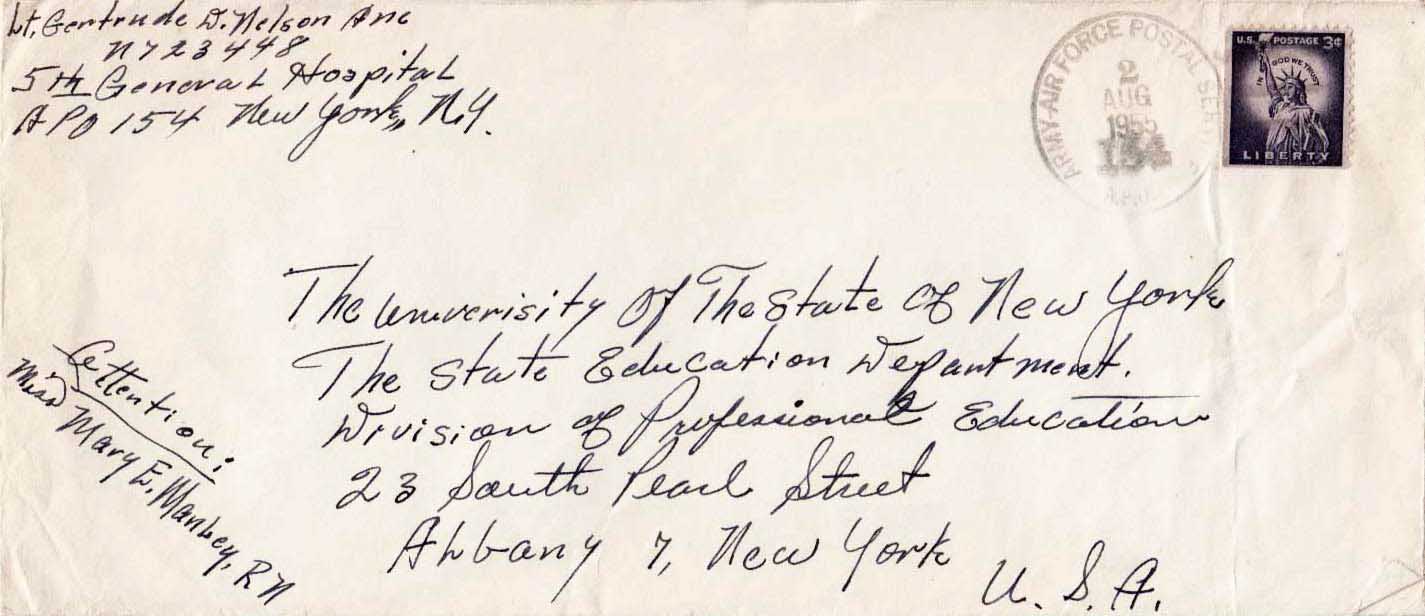 Lt. Gertrude D. Nelson Anc
N723448
5th General Hospital
APO 154 New York, N.Y.
ARMY-AIR FORCE POSTAL SERV
2
AUG
1955
154
A.P.O.
U.S. POSTAGE 3¢
IN GOD WE TRUST
LIBERTY
The Univerisity Of The State Of New York
The State Education Department.
Division of Professional Education
23 South Pearl Street
Albany 7, New York
U. S. A.
Attention:
Miss Mary E. Manley, RN